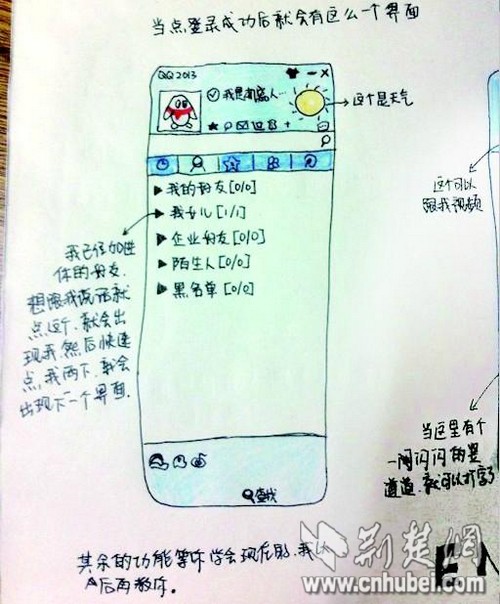 当点登录成功后就会有这么一个界面
QQ2013
我是机器人...
这个是天气
我的好友[0/0]
我女儿[1/1]
企业好友[0/0]
陌生人[0/0]
黑名单[0/0]
我已经加进
你的好友.
想跟我说话就
点这个,就会出
现我,然后快速
点,我两下,就会
出现下一个界面.
这个可以
跟我视频
当这里有个
一闪闪闪的竖
道道,就可以打字了
查找
其余的功能等你学会现在的,我
以后再教你。
荆楚网
www.cnhubei.com